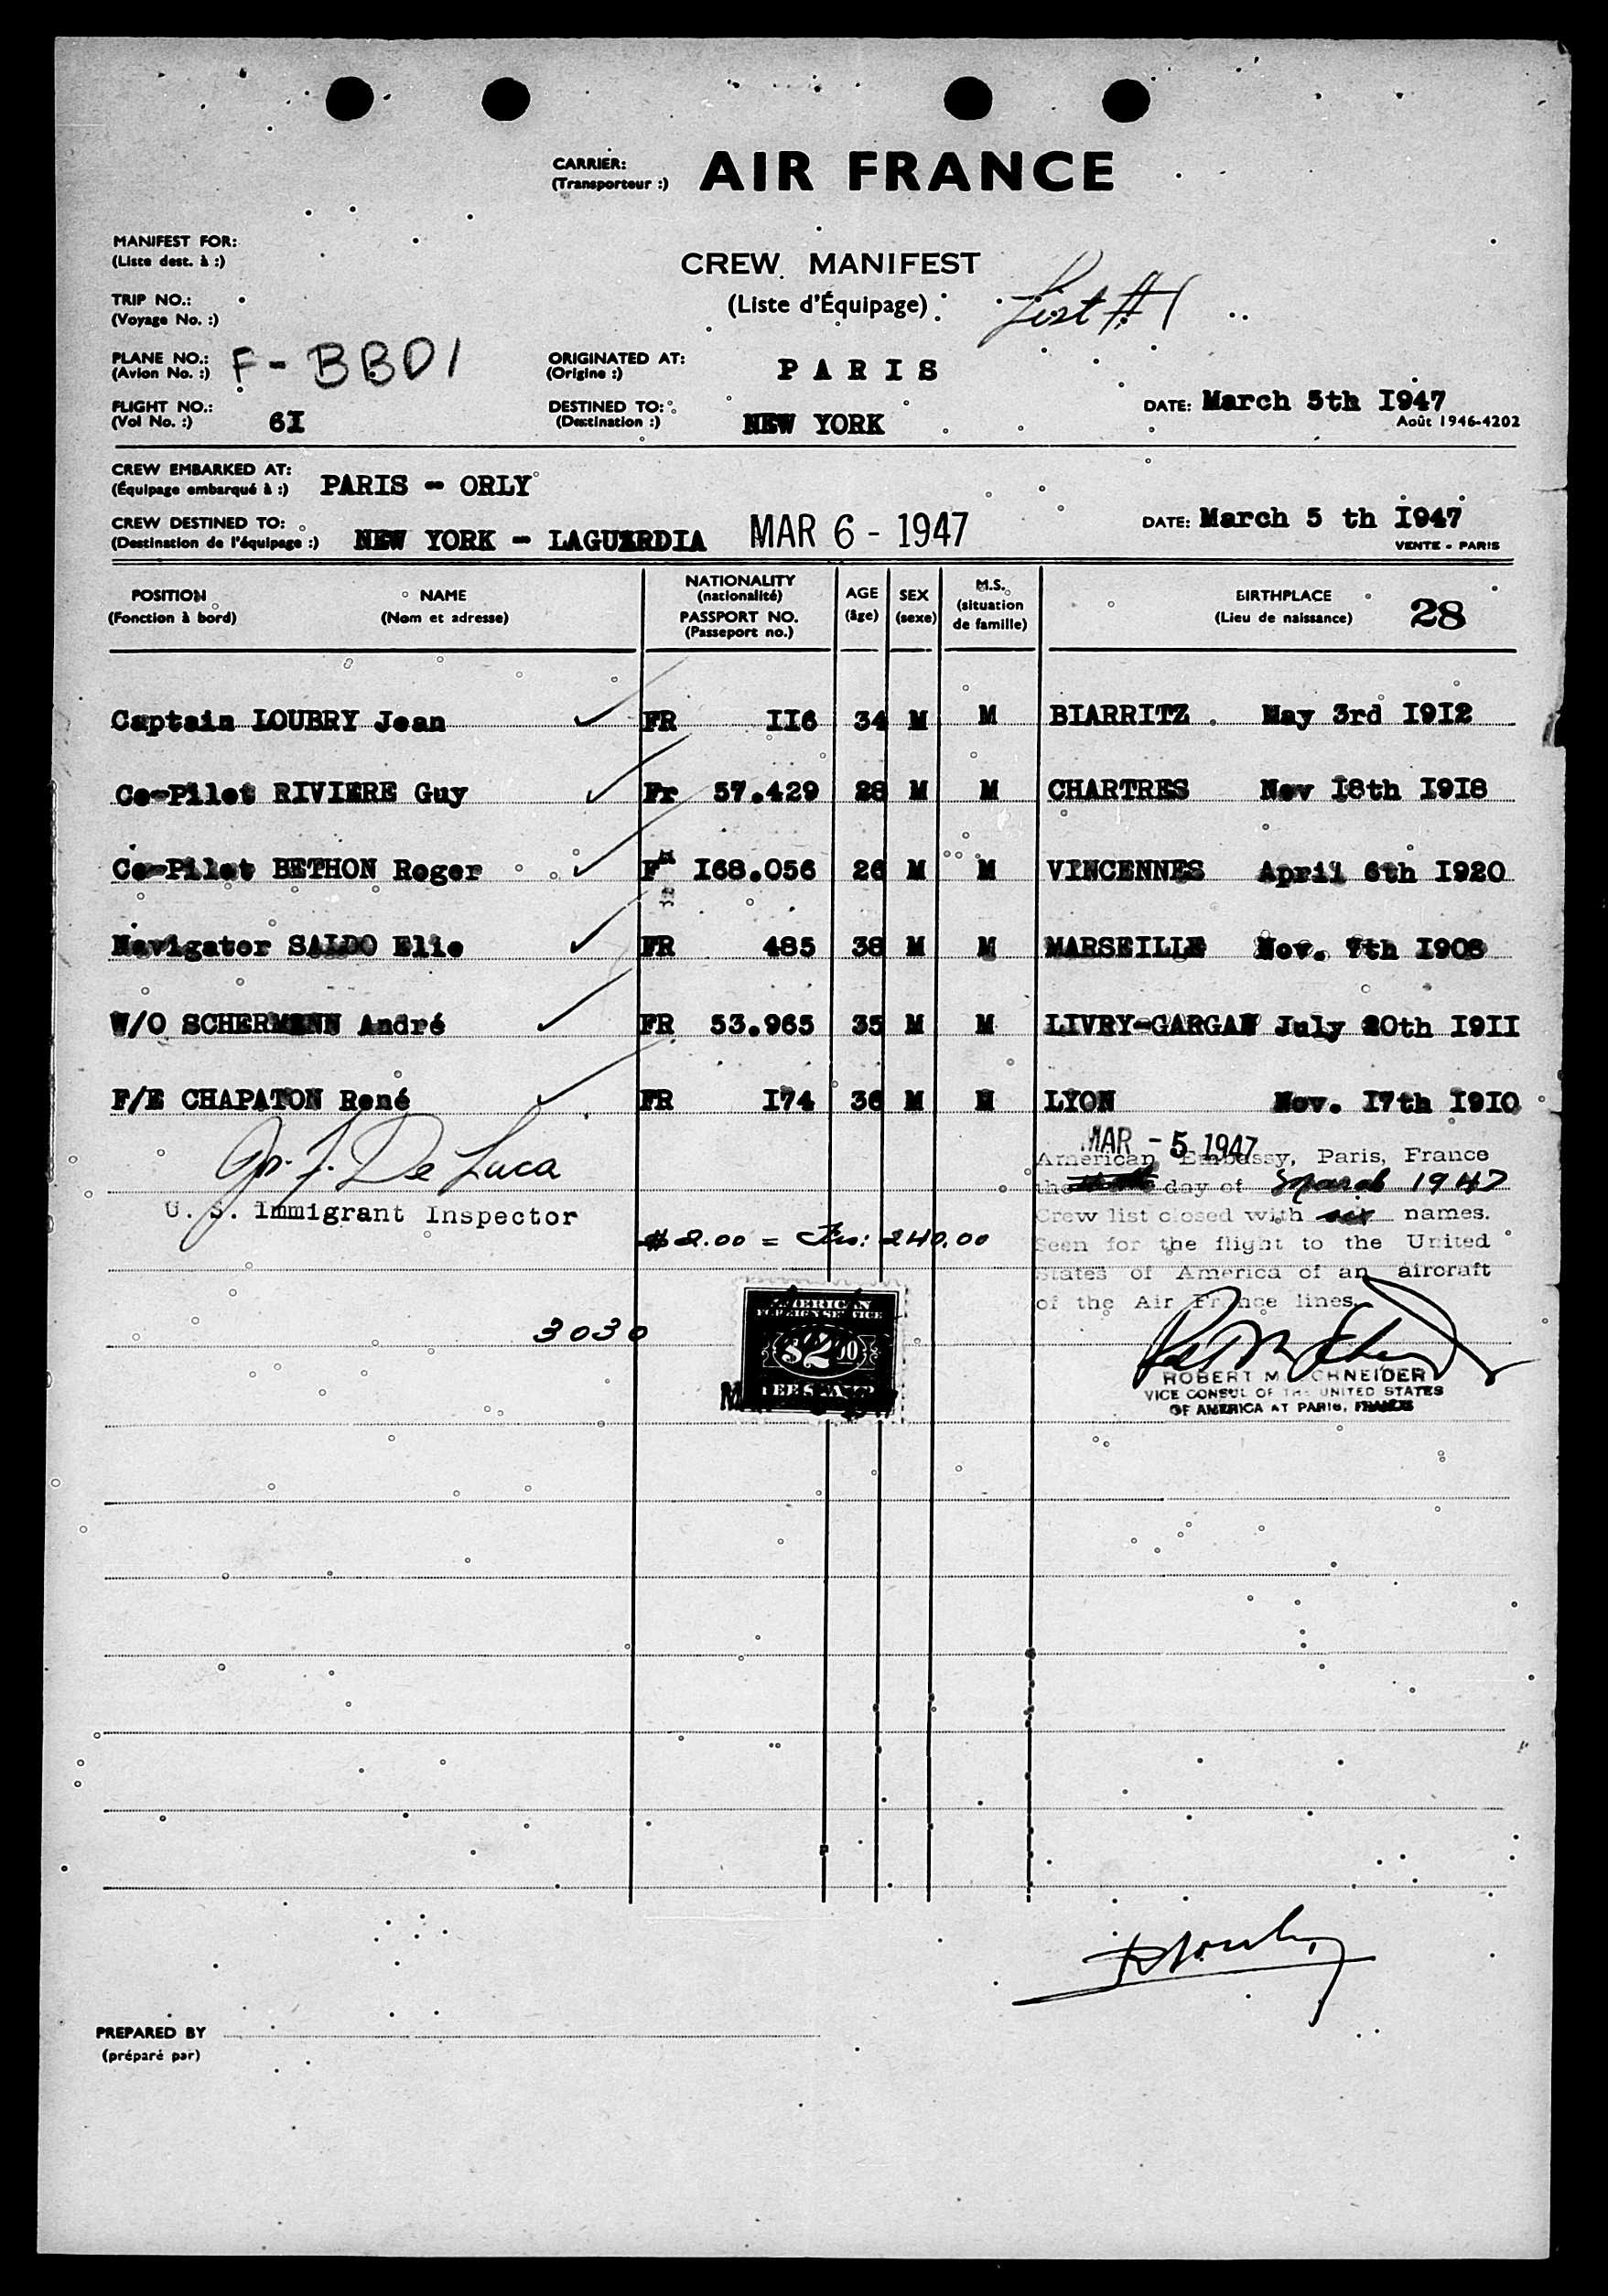 CARRIER: AIR FRANCE
(Transporteur :)
MANIFEST FOR:
(Liste dest. à :)
CREW MANIFEST
(Liste d'Équipage) List #1
TRIP NO.:
(Voyage No. :)
PLANE NO.: F-BBDI
(Avion No. :)
ORIGINATED AT: PARIS
(Origine :)
FLIGHT NO.: 6I
(Vol No. :)
DESTINED TO: NEW YORK
(Destination :)
DATE: March 5th I947
Août 1946-4202
CREW EMBARKED AT: PARIS - ORLY
(Équipage embarqué à :)
CREW DESTINED TO: NEW YORK - LAGUARDIA MAR 6 - 1947
(Destination de l'équipage :)
DATE: March 5 th I947
VENTE - PARIS
POSITION NAME NATIONALITY AGE SEX M.S. BIRTHPLACE 28
(Fonction à bord) (Nom et adresse) (nationalité) PASSPORT NO. (Passeport no.) (âge) (sexe) (situation de famille) (Lieu de naissance)
Captain LOUBRY Jean FR II6 34 M M BIARRITZ . May 3rd I9I2
Co-Pilot RIVIERE Guy Fr 57.429 28 M M CHARTRES Nov I8th I9I8
Co-Pilot BETHON Roger F I68.056 26 M M VINCENNES April 6th I920
Navigator SALDO Elie FR 485 38 M M MARSEILLE Nov. 7th I908
W/O SCHERMANN André FR 53.965 35 M M LIVRY-GARGAN July 20th I9II
F/E CHAPATON René FR I74 36 M M LYON Nov. I7th I9I0
MAR - 5 1947
American Embassy, Paris, France
the day of March 1947
Crew list closed with six names.
Seen for the flight to the United
States of America of an aircraft
of the Air France lines.
De Luca
U. S. Immigrant Inspector
$2.00 = Frs: 240.00
3030
AMERICAN
FOREIGN SERVICE
$2.00
FEE STAMP
ROBERT M. SCHNEIDER
VICE CONSUL OF THE UNITED STATES
OF AMERICA AT PARIS, FRANCE
PREPARED BY
(préparé par)